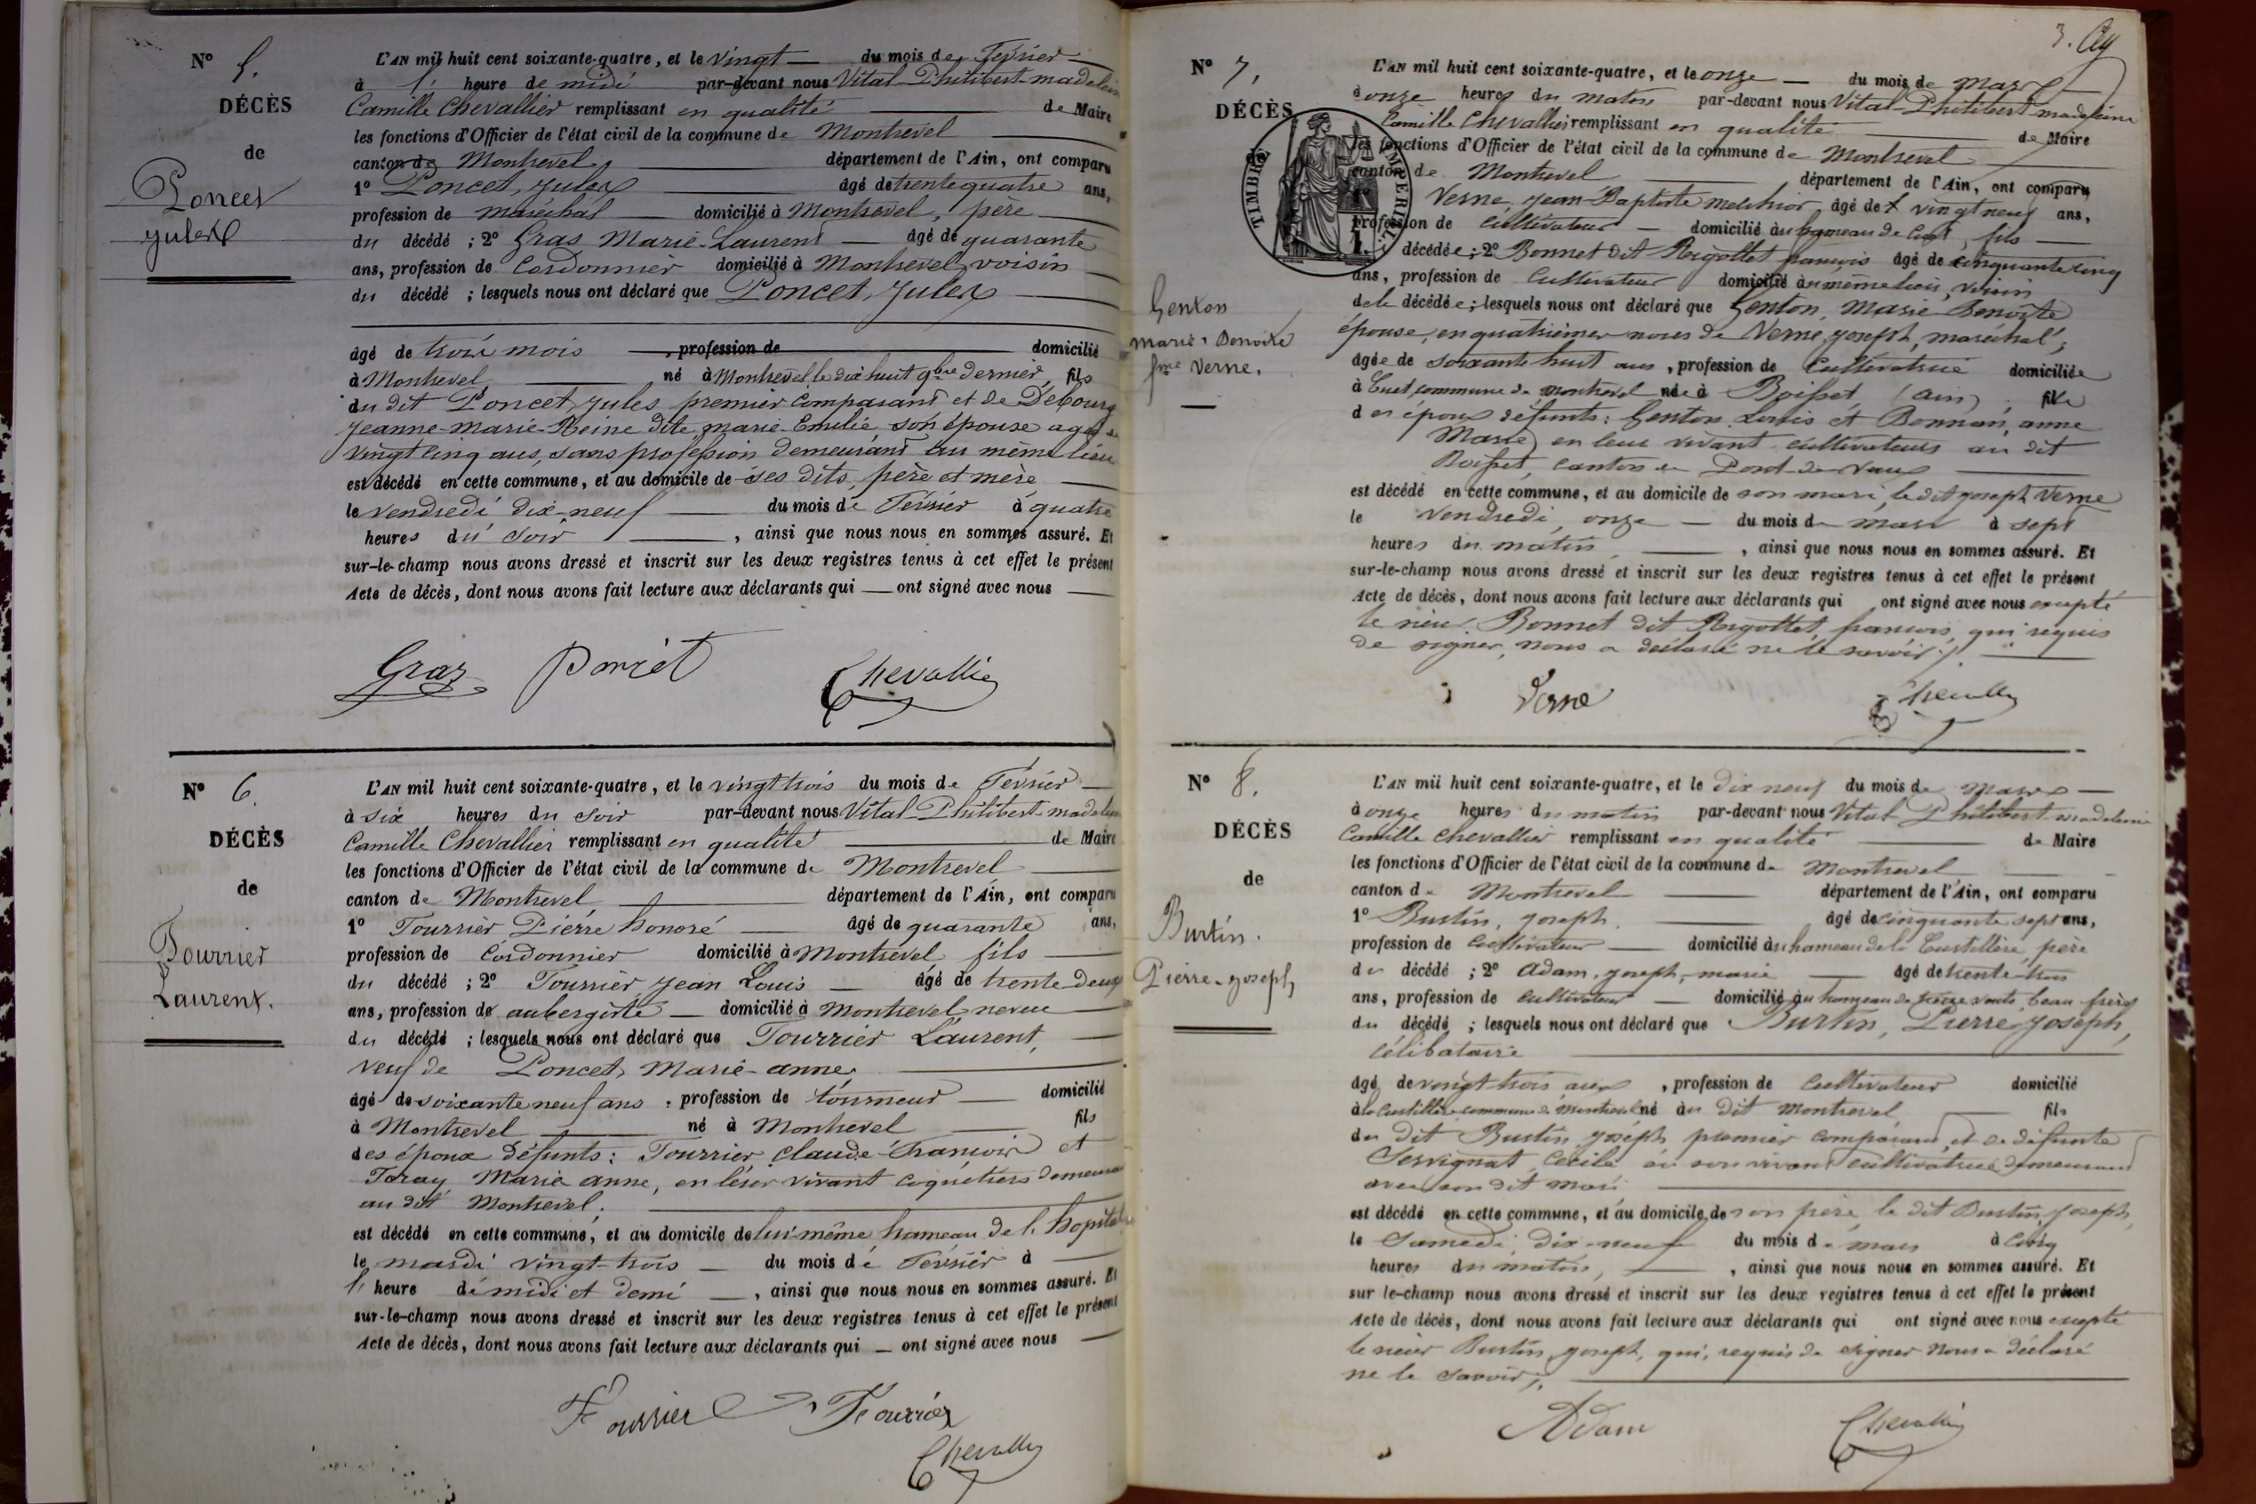 N° 5.
DÉCÈS
de
Poncet
Jules
L'AN mil huit cent soixante-quatre, et le vingt du mois de Février
à l' heure de midi par-devant nous Vital Philibert madelein
Camille Chevallier remplissant en qualité de Maire
les fonctions d'Officier de l'état civil de la commune de Montrevel
canton de Montrevel département de l'Ain, ont comparu
1° Poncet, Jules âgé de trente quatre ans,
profession de maréchal domicilié à Montrevel, père
du décédé ; 2° Gras Marie-Laurent âgé de quarante
ans, profession de Cordonnier domicilié à Montrevel, voisin
du décédé ; lesquels nous ont déclaré que Poncet, Jules
âgé de trois mois , profession de domicilié
à Montrevel né à Montrevel le dix huit 9bre dernier, fils
du dit Poncet, Jules premier comparant et de Debourg
Jeanne-Marie-Reine dite marie Emilie son épouse agée de
vingt cinq ans, sans profession demeurant au même lieu
est décédé en cette commune, et au domicile de ses dits, père et mère
le vendredi dix-neuf du mois de Février à quatre
heures du soir , ainsi que nous nous en sommes assuré. Et
sur-le-champ nous avons dressé et inscrit sur les deux registres tenus à cet effet le présent
Acte de décès, dont nous avons fait lecture aux déclarants qui ont signé avec nous
Gras Poncet Chevallier
N° 6.
DÉCÈS
de
Fourrier
Laurent.
L'AN mil huit cent soixante-quatre, et le vingt trois du mois de Février
à six heures du soir par-devant nous Vital Philibert madelein
Camille Chevallier remplissant en qualité de Maire
les fonctions d'Officier de l'état civil de la commune de Montrevel
canton de Montrevel département de l'Ain, ont comparu
1° Fourrier Pierre honoré âgé de quarante ans,
profession de Cordonnier domicilié à Montrevel fils
du décédé ; 2° Fourrier Jean Louis âgé de trente-deux
ans, profession de aubergiste domicilié à Montrevel neveu
du décédé ; lesquels nous ont déclaré que Fourrier Laurent,
veuf de Poncet, Marie-anne,
âgé de soixante neuf ans , profession de tourneur domicilié
à Montrevel né à Montrevel fils
des époux défunts : Fourrier Claude-François et
Faray Marie anne, en leur vivant coquetiers demeurant
au dit Montrevel,
est décédé en cette commune, et au domicile de lui même hameau de l'hopital
le mardi vingt-trois du mois de Février à
l' heure de midi et demi , ainsi que nous nous en sommes assuré. Et
sur-le-champ nous avons dressé et inscrit sur les deux registres tenus à cet effet le présent
Acte de décès, dont nous avons fait lecture aux déclarants qui ont signé avec nous
Fourrier Fourrier
Chevallier
N° 7.
DÉCÈS
de
TIMBRE IMPERIAL
Genton
Marie-Benoite
fme Verne.
L'AN mil huit cent soixante-quatre, et le onze du mois de Mars
à onze heures du matin par-devant nous Vital-Philibert madeleine
Camille Chevallier remplissant en qualité de Maire
les fonctions d'Officier de l'état civil de la commune de Montrevel
canton de Montrevel département de l'Ain, ont comparu
Verne, Jean-Baptiste melchior, âgé de vingt neuf ans,
profession de Cultivateur domicilié au hameau de Cuet, fils
décédée ; 2° Bonnet dit Rigottet françois âgé de cinquante cinq
ans, profession de Cultivateur domicilié au même lieu, voisin
de la décédée ; lesquels nous ont déclaré que Genton, Marie Benoite
épouse, en quatrièmes noces de Verne, Joseph, maréchal,
âgée de soixante huit ans , profession de Cultivatrice domiciliée
à Cuet, commune de Montrevel née à Boisset, (ain) fille
des époux défunts : Genton Louis et Bonnan, anne
Marie, en leur vivant cultivateurs au dit
Boisset, canton de Pont-de-Vaux
est décédé en cette commune, et au domicile de son mari, le dit Joseph Verne
le Vendredi, onze du mois de mars à sept
heures du matin , ainsi que nous nous en sommes assuré. Et
sur-le-champ nous avons dressé et inscrit sur les deux registres tenus à cet effet le présent
Acte de décès, dont nous avons fait lecture aux déclarants qui ont signé avec nous excepté
le sieur Bonnet dit Rigottet, françois, qui requis
de signer, nous a déclaré ne le savoir ;
Verne Chevallier
N° 8.
DÉCÈS
de
Burtin.
Pierre-Joseph
L'AN mil huit cent soixante-quatre, et le dix neuf du mois de Mars
à onze heures du matin par-devant nous Vital Philibert madeleine
Camille Chevallier remplissant en qualité de Maire
les fonctions d'Officier de l'état civil de la commune de Montrevel
canton de Montrevel département de l'Ain, ont comparu
1° Burtin, Joseph. âgé de cinquante sept ans,
profession de Cultivateur domicilié au hameau de la Custillière, père
du décédé ; 2° Adam, Joseph-marie âgé de trente trois
ans, profession de Cultivateur domicilié au hameau de beau frère
du décédé ; lesquels nous ont déclaré que Burtin, Pierre Joseph,
Célibataire
âgé de vingt trois ans , profession de Cultivateur domicilié
à la Custillière commune de Montrevel né au dit Montrevel fils
du dit Burtin Joseph premier comparant et de défunte
Servignat, Cécile en son vivant Cultivatrice demeurant
avec son dit mari
est décédé en cette commune, et au domicile de son père le dit Burtin, Joseph,
le Samedi dix-neuf du mois de mars à cinq
heures du matin, , ainsi que nous nous en sommes assuré. Et
sur le-champ nous avons dressé et inscrit sur les deux registres tenus à cet effet le présent
Acte de décès, dont nous avons fait lecture aux déclarants qui ont signé avec nous excepté
le sieur Burtin Joseph, qui, requis de signer nous a déclaré
ne le savoir ;
Adam Chevallier